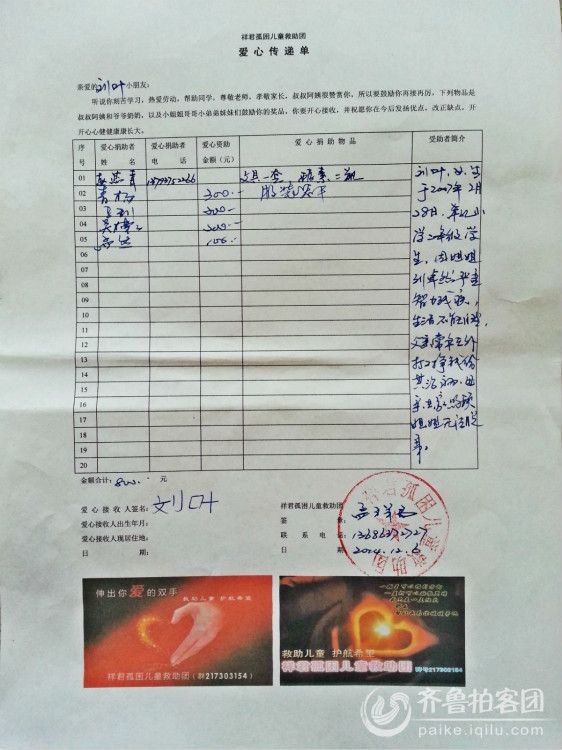 祥君孤困儿童救助团
爱心传递单
亲爱的刘叶小朋友:
听说你刻苦学习,热爱劳动,帮助同学,尊敬老师,孝敬家长,叔叔阿姨很赞赏你,所以要鼓励你再接再厉,下列物品是
叔叔阿姨和爷爷奶奶,以及小姐姐哥哥小弟弟妹妹们鼓励你的奖品,你要开心接收,并祝愿你在今后发扬优点,改正缺点,开
开心心健健康康长大。
序号 爱心捐助者姓名 爱心捐助者电话 爱心资助金额(元) 爱心捐助物品 受助者简介
01 文具一套
02 300.- 服装若干
03 200.-
04 200.-
05 100.-
06
07
08
09
10
11
12
13
14
15
16
17
18
19
20
刘叶,女,生
于2007年2月
28日,单记小
学二年级学
生,因姐姐
智力残疾,
生活不能自理,
父亲常年在外
打工挣钱份
姐姐无法脱
身。
金额合计:800.- 元
爱心接收人签名:刘叶
爱心接收人出生年月:
爱心接收人现居住地:
日期:
祥君孤困儿童救助团
签章:
联系电话:13686372727
日期:2014.12.6
祥君孤困儿童救助团
伸出你爱的双手
救助儿童 护航希望
祥君孤困儿童救助团(群217303154)
救助儿童 护航希望
祥君孤困儿童救助团 群号217303154
齐鲁拍客团
paike.iqilu.com